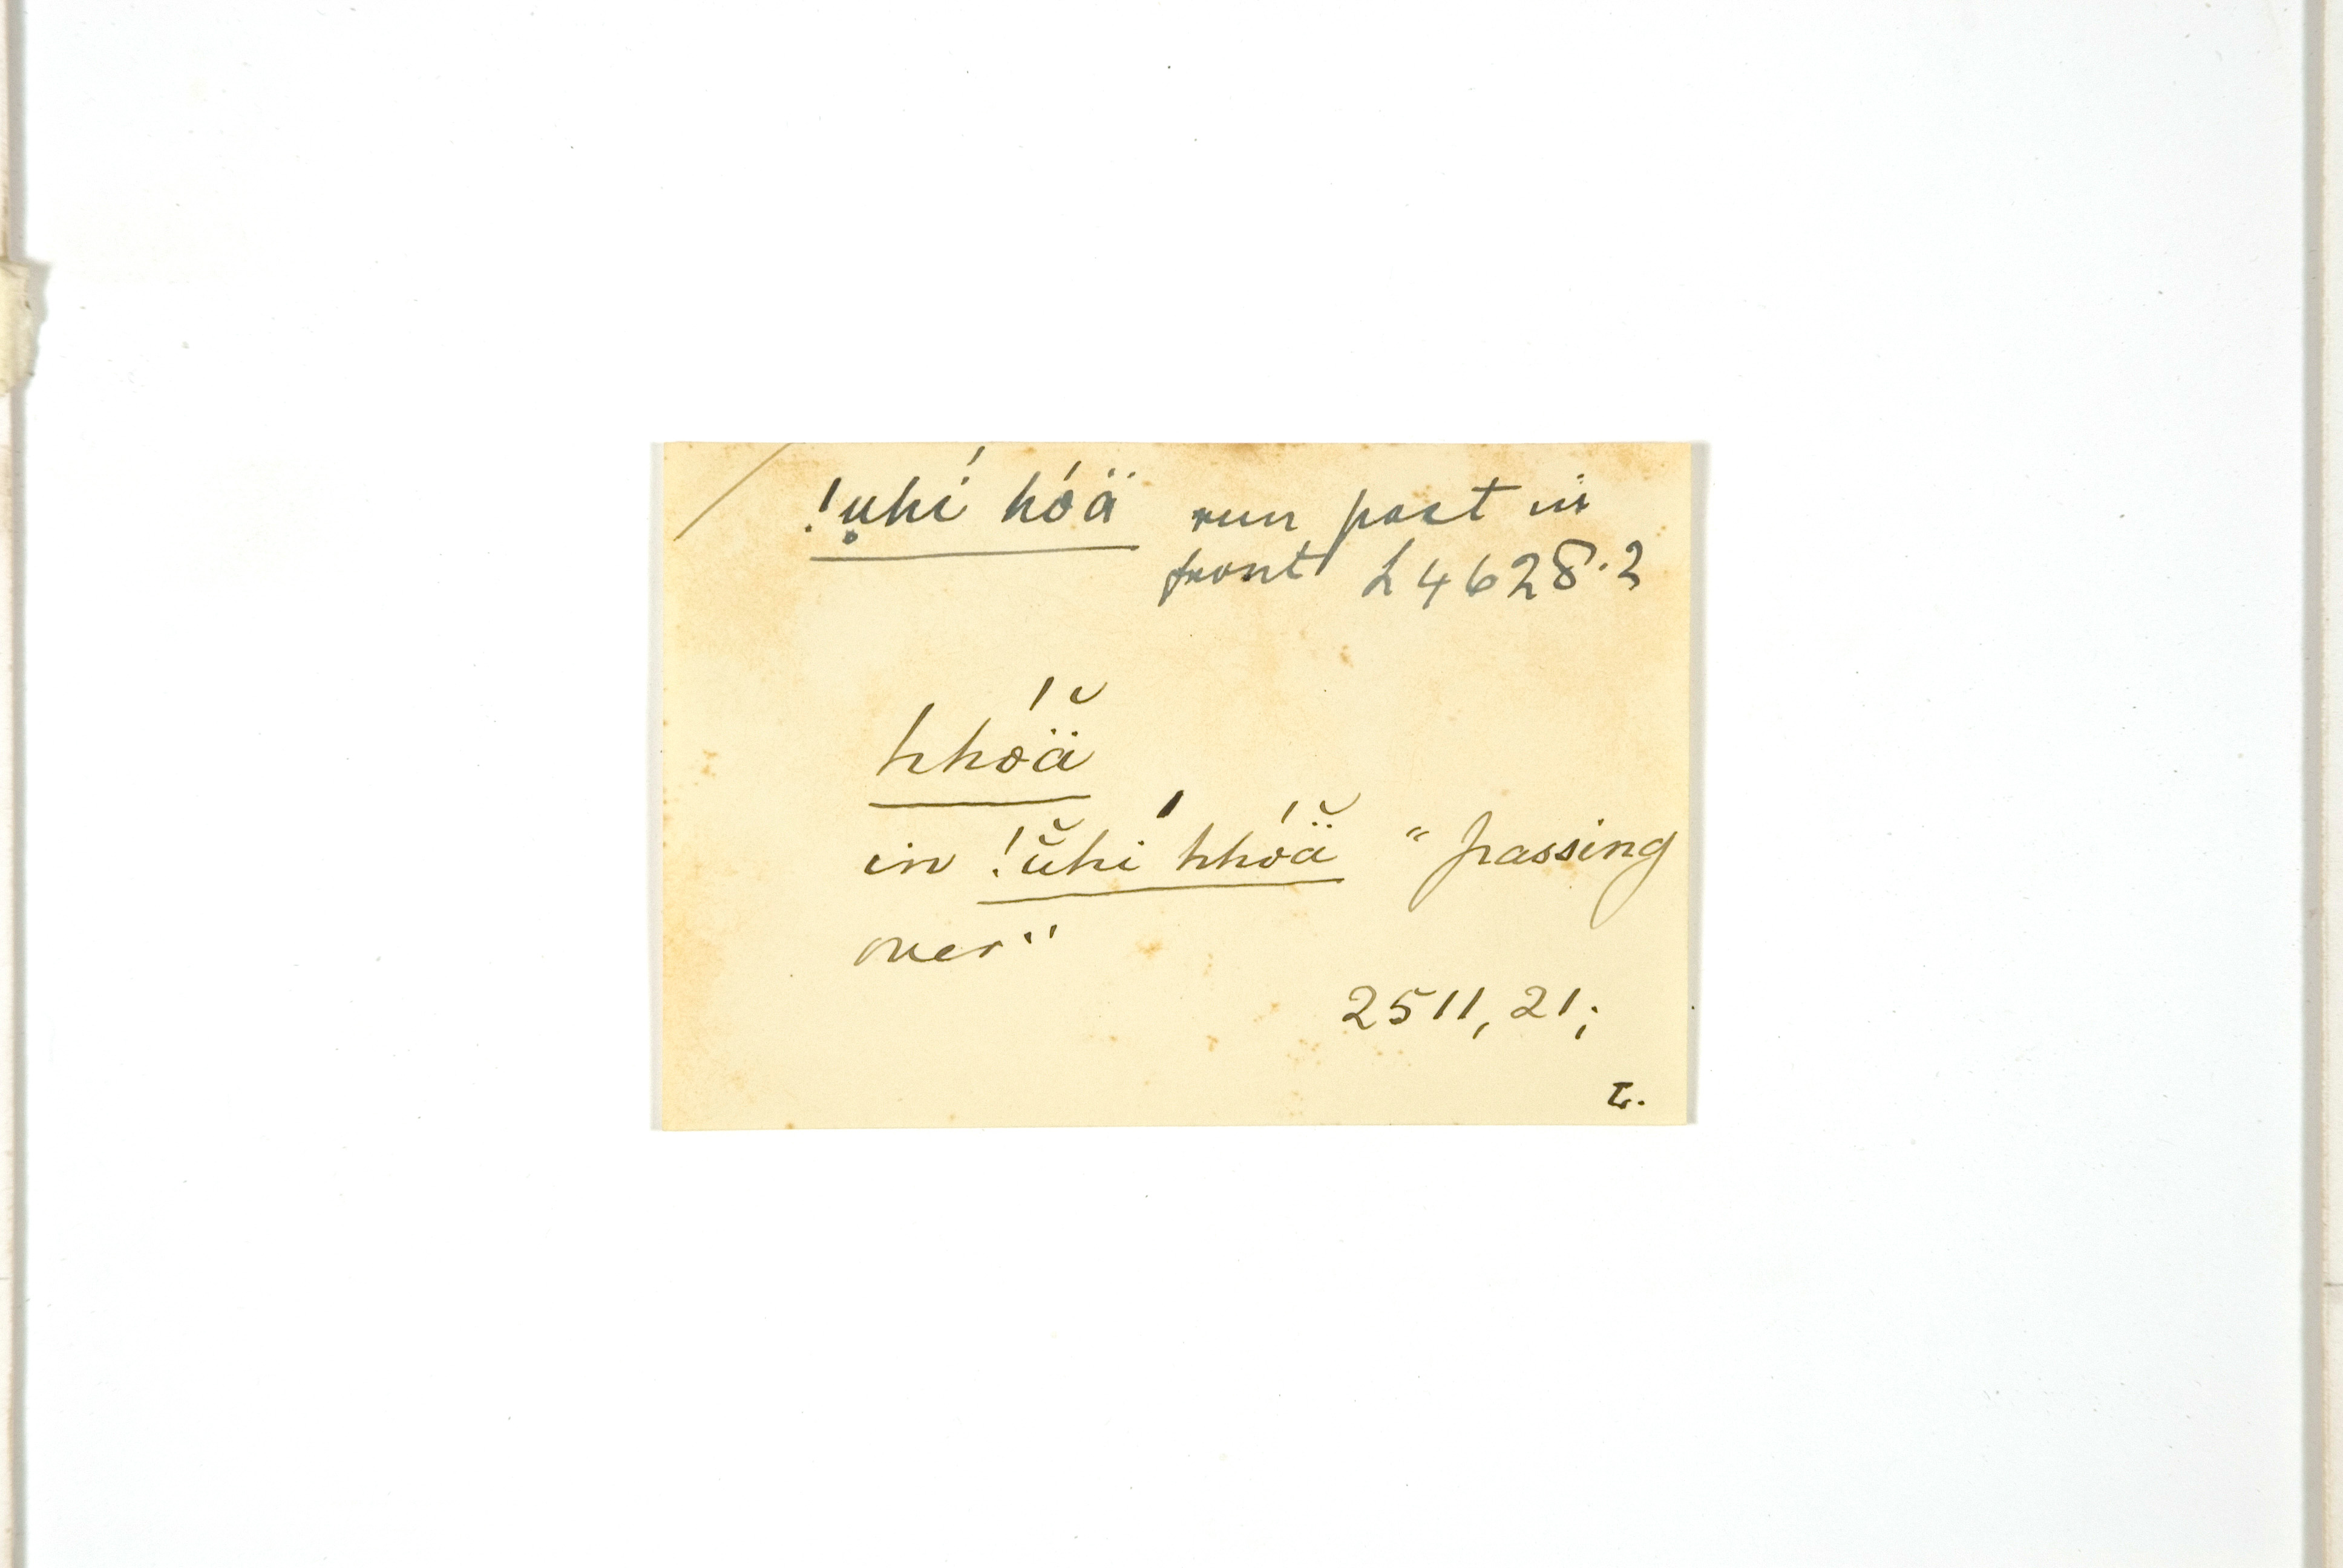 !ụhí hóä run past in
front L4628.2
hhóä̆
in !ŭhí hhóä̆ "passing
over"
2511, 21;
L.